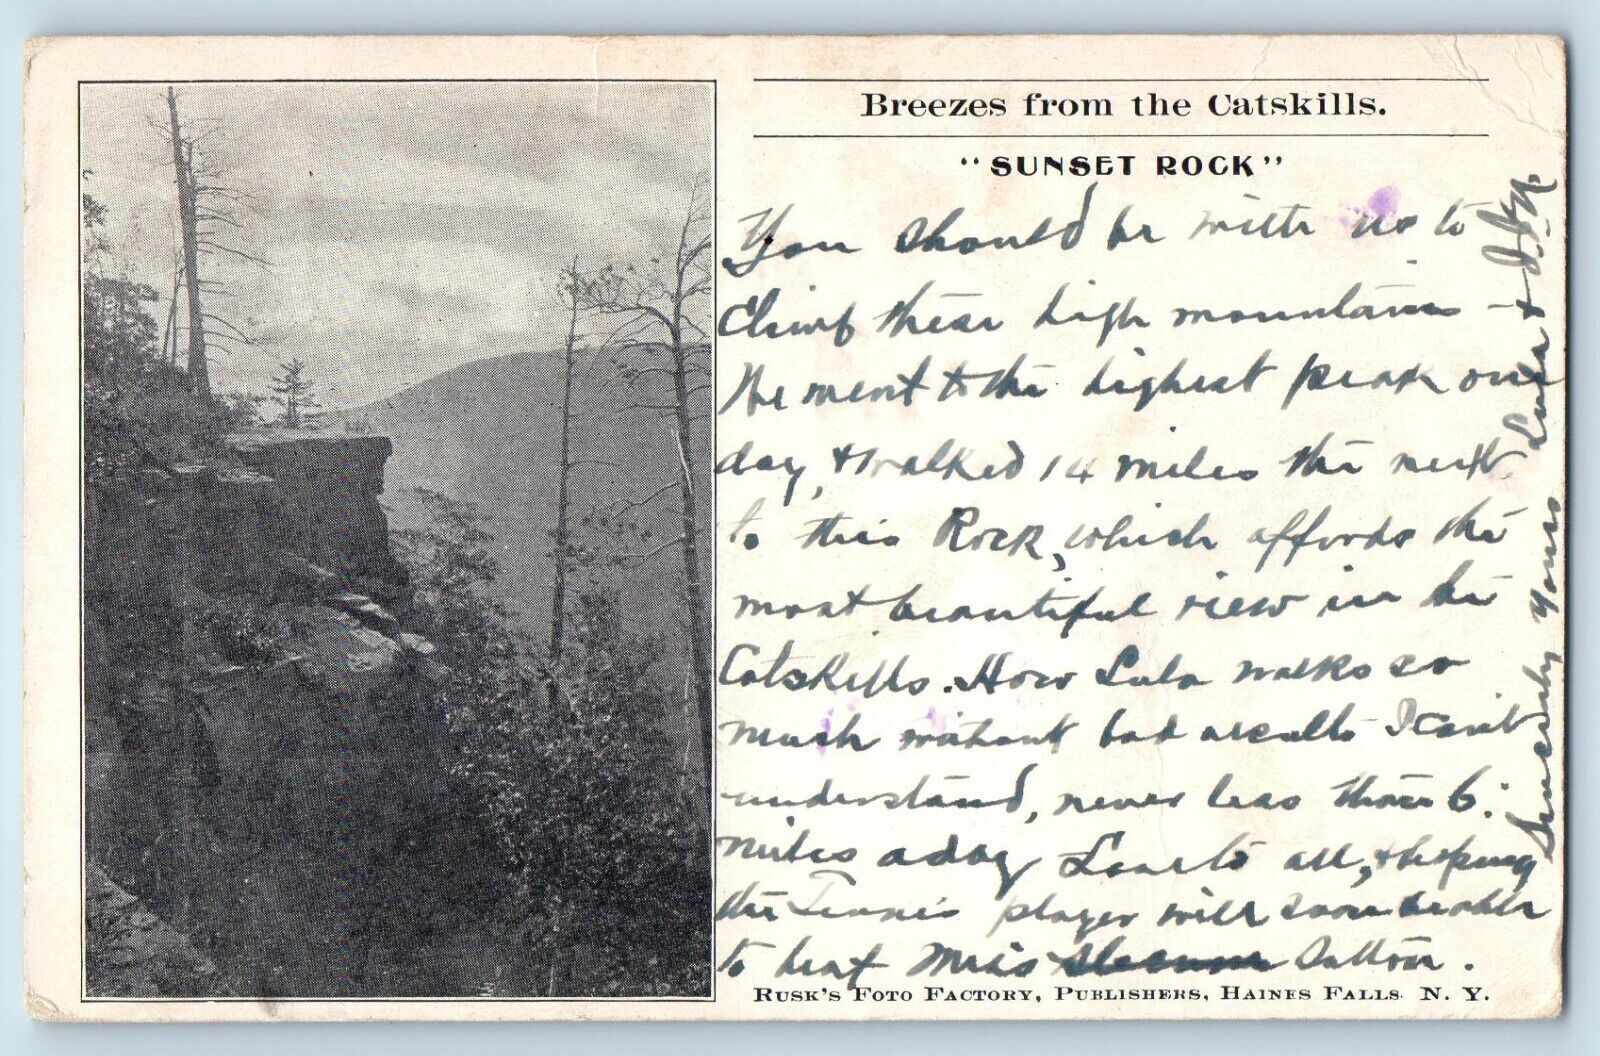 Breezes from the Catskills.
"SUNSET ROCK"
You should be with us to
Climb these high mountains –
We went to the highest peak one
day, & walked 14 miles the next
to this Rock, which affords the
most beautiful view in the
Catskills. How Lula walks so
much without bad results I can't
understand, never less than 6
miles a day Love to all, & hoping
the Tennis player will soon be able
to beat Miss Sutton.
Sincerely Yours Lula &
RUSK'S FOTO FACTORY, PUBLISHERS, HAINES FALLS. N. Y.